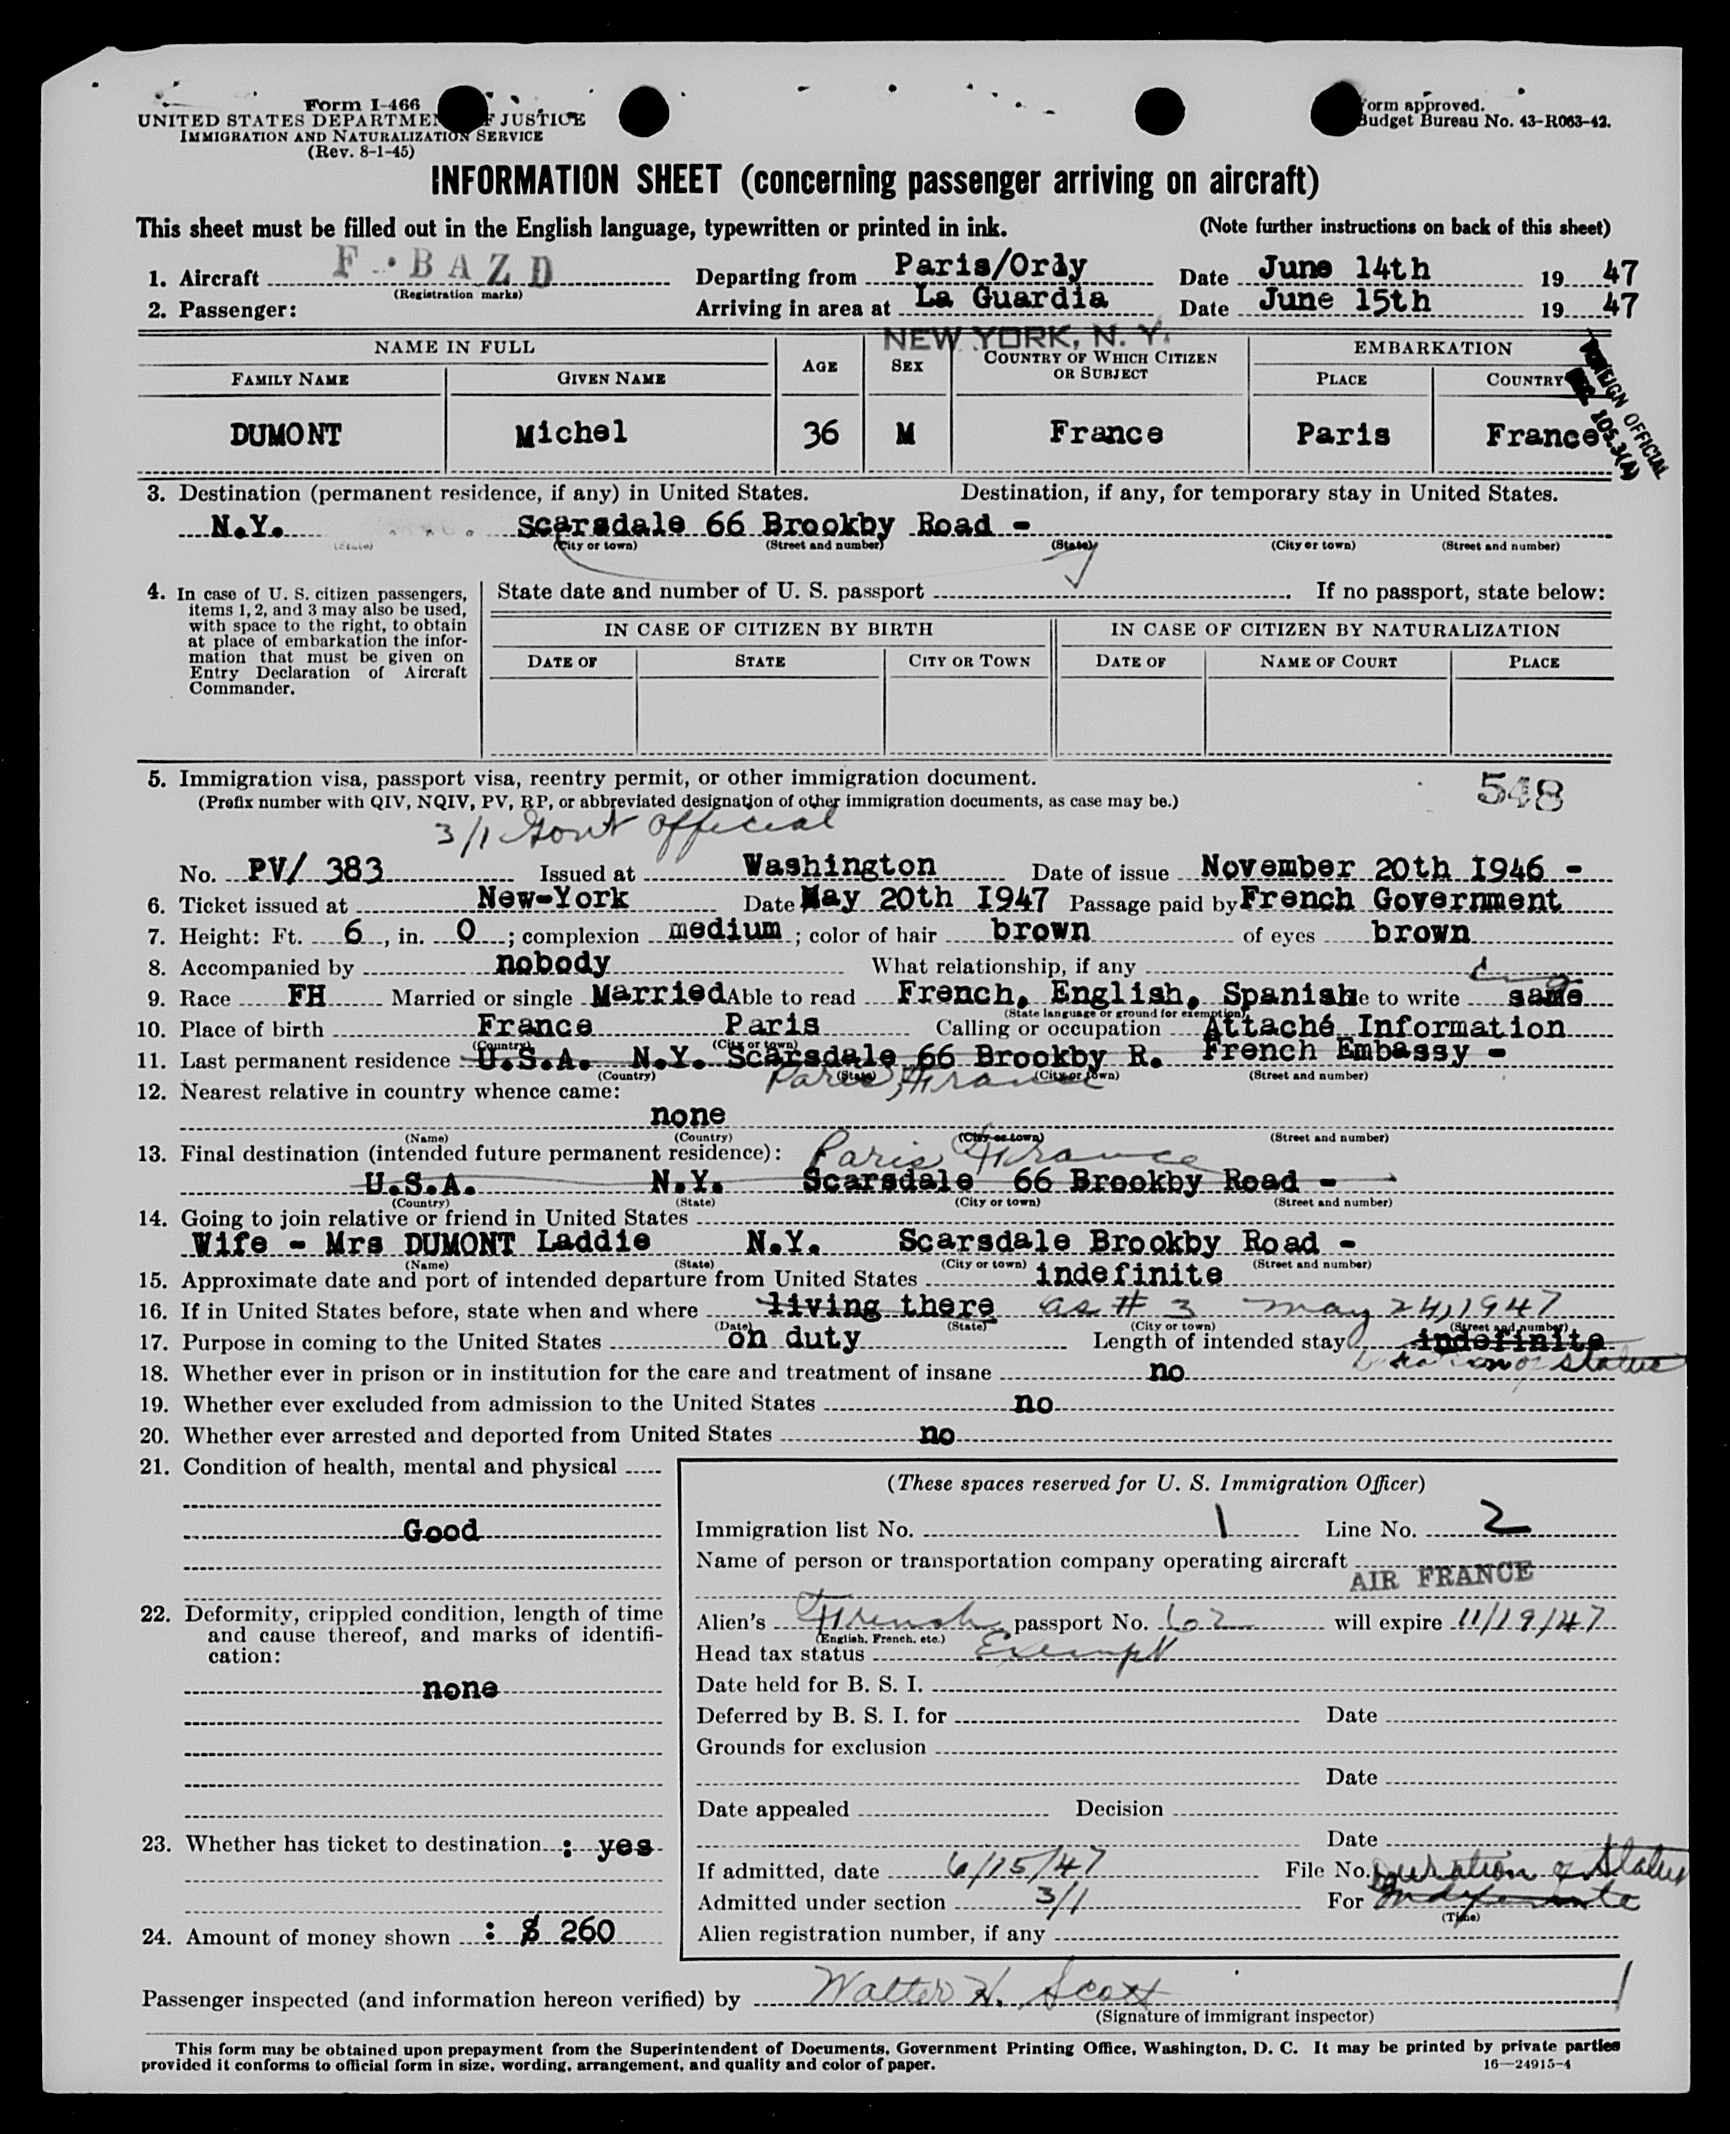 Form I-466
UNITED STATES DEPARTMENT OF JUSTICE
IMMIGRATION AND NATURALIZATION SERVICE
(Rev. 8-1-45)
Form approved.
Budget Bureau No. 43-R063-42.
INFORMATION SHEET (concerning passenger arriving on aircraft)
This sheet must be filled out in the English language, typewritten or printed in ink. (Note further instructions on back of this sheet)
1. Aircraft F-BAZD Departing from Paris/Orly Date June 14th 1947
(Registration marks)
2. Passenger: Arriving in area at La Guardia Date June 15th 1947
NEW YORK, N. Y.
NAME IN FULL AGE SEX COUNTRY OF WHICH CITIZEN OR SUBJECT EMBARKATION
FAMILY NAME GIVEN NAME PLACE COUNTRY
DUMONT Michel 36 M France Paris France
FOREIGN OFFICIAL
105.3(A)
3. Destination (permanent residence, if any) in United States. Destination, if any, for temporary stay in United States.
N.Y. Scarsdale 66 Brookby Road -
(State) (City or town) (Street and number) (State) (City or town) (Street and number)
4. In case of U. S. citizen passengers, items 1, 2, and 3 may also be used, with space to the right, to obtain at place of embarkation the information that must be given on Entry Declaration of Aircraft Commander.
State date and number of U. S. passport If no passport, state below:
IN CASE OF CITIZEN BY BIRTH IN CASE OF CITIZEN BY NATURALIZATION
DATE OF STATE CITY OR TOWN DATE OF NAME OF COURT PLACE
5. Immigration visa, passport visa, reentry permit, or other immigration document. 548
(Prefix number with QIV, NQIV, PV, RP, or abbreviated designation of other immigration documents, as case may be.)
3/1 Govt official
No. PV/ 383 Issued at Washington Date of issue November 20th I946 -
6. Ticket issued at New-York Date May 20th I947 Passage paid by French Government
7. Height: Ft. 6, in. 0; complexion medium; color of hair brown of eyes brown
8. Accompanied by nobody What relationship, if any
9. Race FH Married or single Married Able to read French, English, Spanish to write same
(State language or ground for exemption)
10. Place of birth France Paris Calling or occupation Attaché Information
(Country) (City or town)
11. Last permanent residence U.S.A. N.Y. Scarsdale 66 Brookby R. French Embassy -
(Country) (State) (City or town) (Street and number)
Paris, France
12. Nearest relative in country whence came:
none
(Name) (Country) (City or town) (Street and number)
13. Final destination (intended future permanent residence): Paris France
U.S.A. N.Y. Scarsdale 66 Brookby Road -
(Country) (State) (City or town) (Street and number)
14. Going to join relative or friend in United States
Wife - Mrs DUMONT Laddie N.Y. Scarsdale Brookby Road -
(Name) (State) (City or town) (Street and number)
15. Approximate date and port of intended departure from United States indefinite
16. If in United States before, state when and where living there as # 3 may 24, 1947
(Date) (State) (City or town) (Street and number)
17. Purpose in coming to the United States on duty Length of intended stay indefinite
Duration of status
18. Whether ever in prison or in institution for the care and treatment of insane no
19. Whether ever excluded from admission to the United States no
20. Whether ever arrested and deported from United States no
21. Condition of health, mental and physical
Good
22. Deformity, crippled condition, length of time and cause thereof, and marks of identification:
none
23. Whether has ticket to destination : yes
24. Amount of money shown : $ 260
(These spaces reserved for U. S. Immigration Officer)
Immigration list No. 1 Line No. 2
Name of person or transportation company operating aircraft
AIR FRANCE
Alien's French passport No. 62 will expire 11/19/47
(English, French, etc.)
Head tax status Exempt
Date held for B. S. I.
Deferred by B. S. I. for Date
Grounds for exclusion
Date
Date appealed Decision
Date
If admitted, date 6/15/47 File No. Duration of Status
Admitted under section 3/1 For Indefinite
(Time)
Alien registration number, if any
Passenger inspected (and information hereon verified) by Walter H. Scott
(Signature of immigrant inspector)
This form may be obtained upon prepayment from the Superintendent of Documents, Government Printing Office, Washington, D. C. It may be printed by private parties
provided it conforms to official form in size, wording, arrangement, and quality and color of paper. 16—24915-4